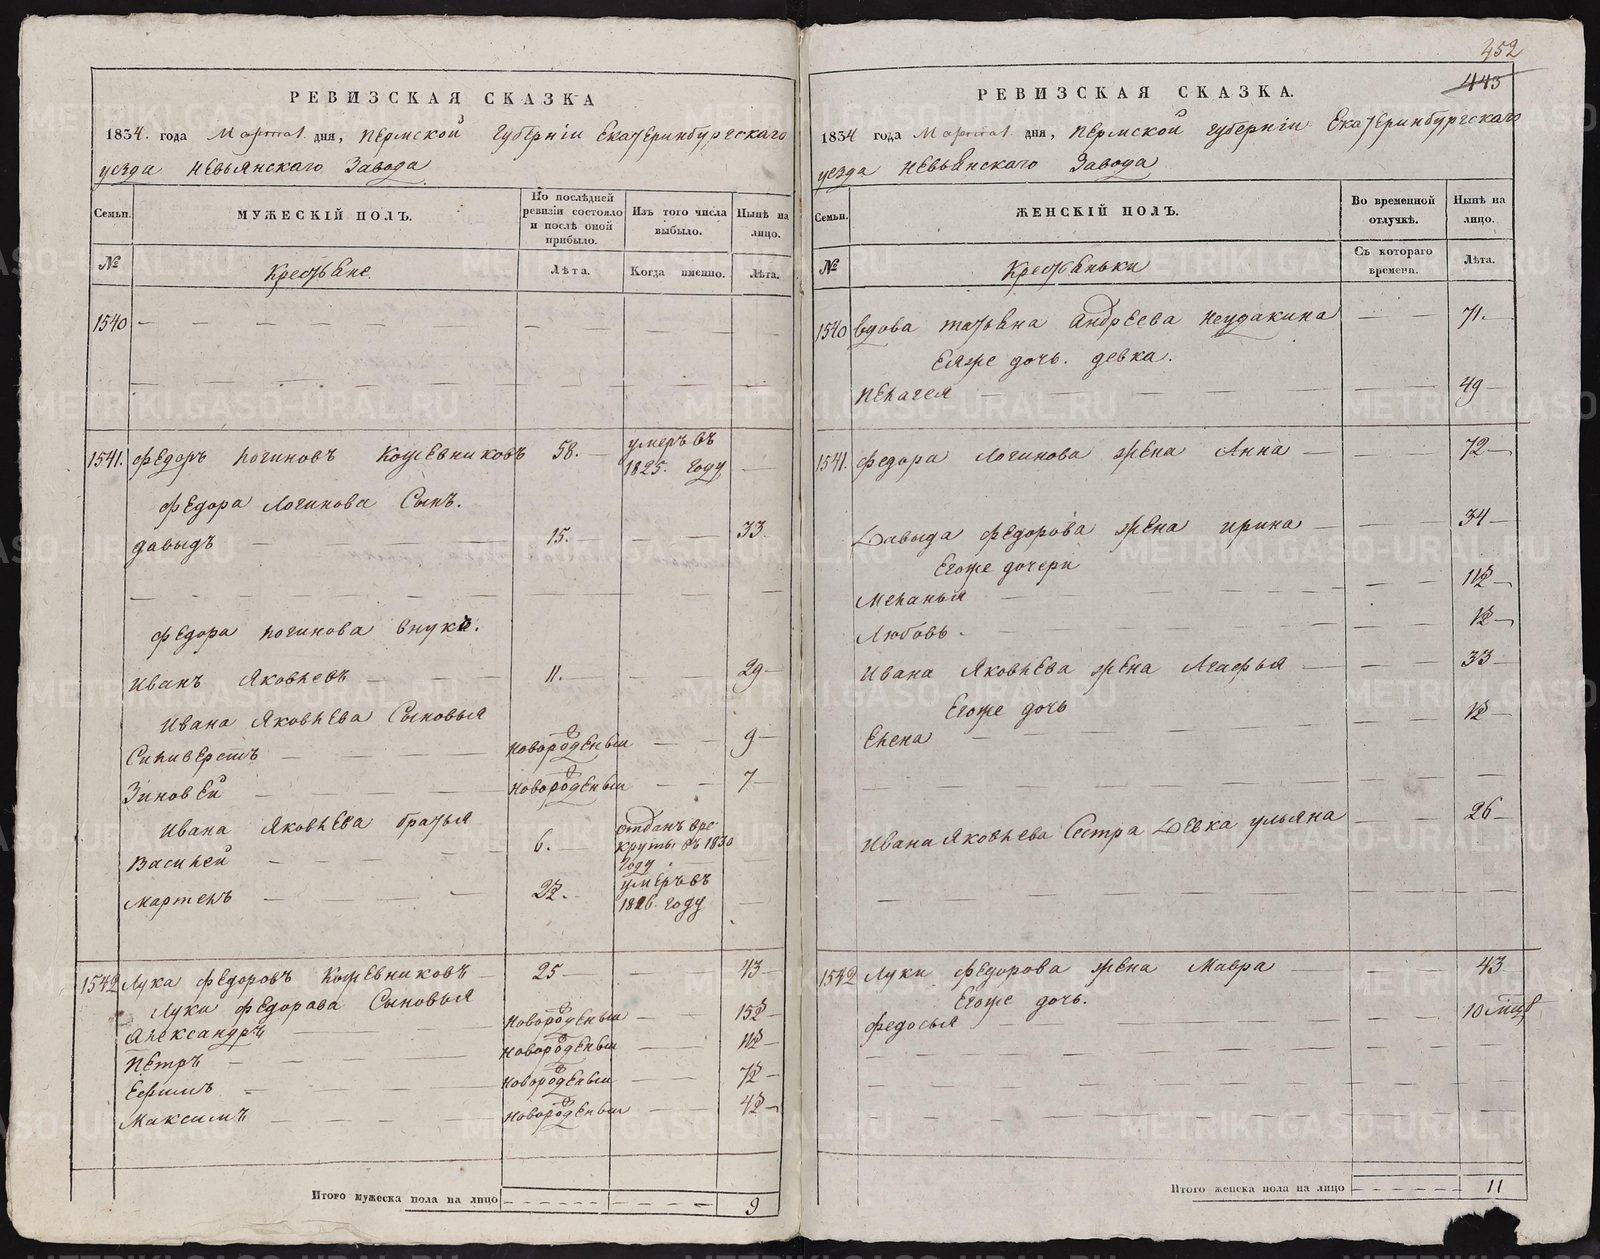 452
443
РЕВИЗСКАЯ СКАЗКА
1834. года Марта 1. дня, Пермской Губерніи Екатеринбургскаго
уезда Невьянскаго Завода
Семьи. МУЖЕСКІЙ ПОЛЪ. По послѣдней ревизіи состояло и послѣ оной прибыло. Изъ того числа выбыло. Нынѣ на лицо.
№ Крестьяне. Лѣта. Когда именно. Лѣта.
1540
1541. Федоръ Логиновъ Кожевниковъ 58. умеръ въ 1825. году
Федора Логинова Сынъ.
Давыдъ 15. 33
Федора Логинова внукъ.
Иванъ Яковлевъ 11. 29
Ивана Яковлева Сыновья
Силиверстъ новороденый 9
Зиновей новороденый 7
Ивана Яковлева братья
Василей 6. отданъ вре круты въ 1830 году
Мартенъ умеръ въ 1826. году
1542 Лука Федоровъ Кожевниковъ 25 43
Луки Федорова Сыновья
Александръ новороденый 15½
Петръ новороденый 11½
Ефимъ новороденый 7½
Максимъ новороденый 4½
Итого мужеска пола на лицо 9
РЕВИЗСКАЯ СКАЗКА.
1834 года Марта 1. дня, Пермской губерніи Екатеринбургскаго
уезда Невьянскаго Завода
Семьи. ЖЕНСКІЙ ПОЛЪ. Во временной отлучкѣ. Нынѣ на лицо.
№ Крестьянки Съ котораго времени. Лѣта.
1540 вдова татьяна Андреева Неудакина 71.
Еяже дочь. девка.
Пелагея 49
1541. Федора Логинова жена Анна 72
Давыда Федорова жена ирина 34
Егоже дочери
Меланья 11½
Любовь. 1½
Ивана Яковлева жена Агафья 33
Егоже дочь
Елена 1½
Ивана Яковлева Сестра Девка ульяна 26
1542 Луки Федорова жена Мавра 43
Егоже дочь.
Федосья 10 мцъ
Итого женска пола на лицо 11
METRIKI.GASO-URAL.RU